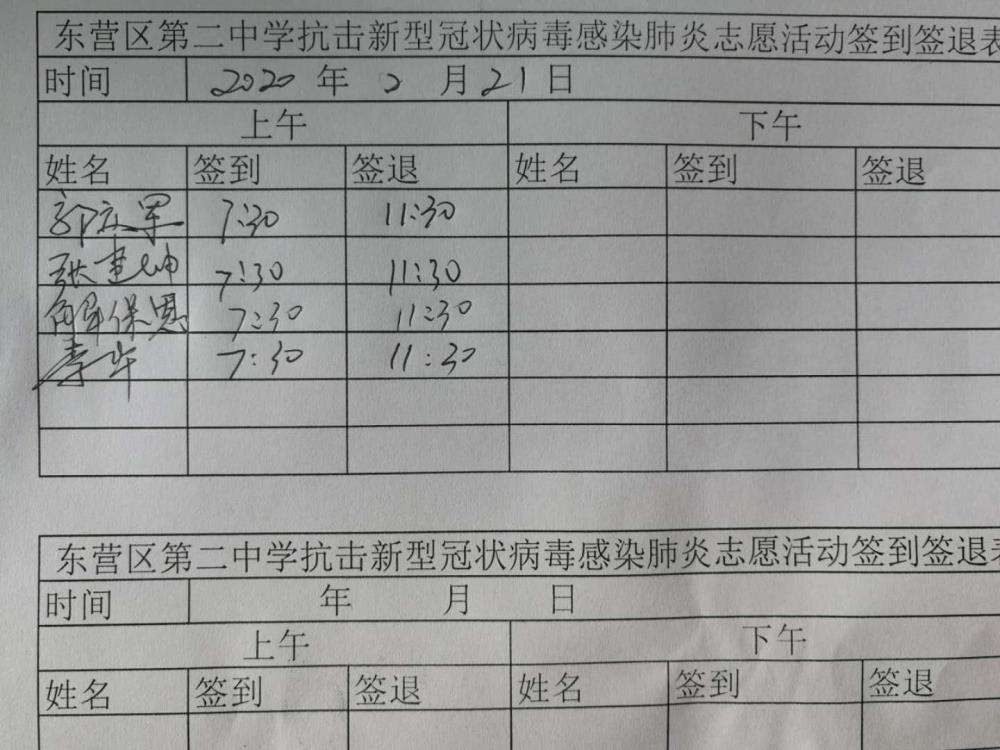 东营区第二中学抗击新型冠状病毒感染肺炎志愿活动签到签退表
时间 2020 年 2 月 21 日
上午 下午
姓名 签到 签退 姓名 签到 签退
7:30 11:30
张建坤 7:30 11:30
解保恩 7:30 11:30
李华 7:30 11:30
东营区第二中学抗击新型冠状病毒感染肺炎志愿活动签到签退表
时间 年 月 日
上午 下午
姓名 签到 签退 姓名 签到 签退